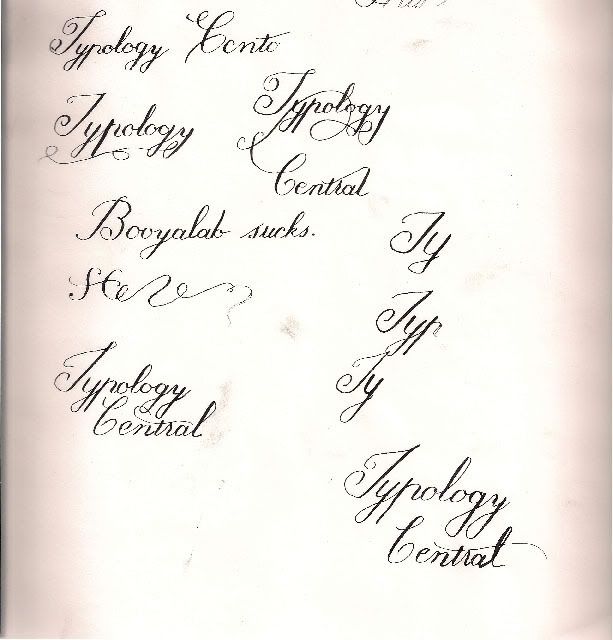 Typology Cento
Typology
Typology
Central
Booyalab sucks.
Ty
Typ
Typology
Central
Ty
Typology
Central